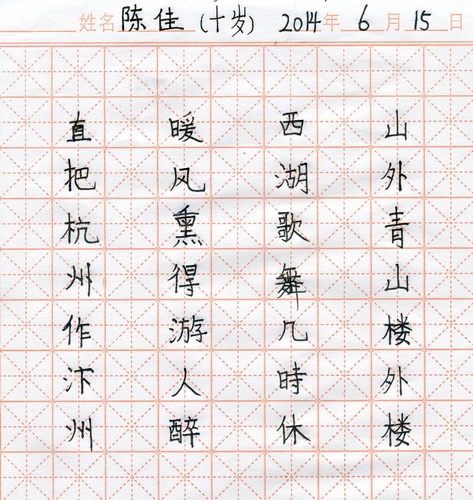 姓名 陈佳（十岁） 2014年 6月 15日
山外青山楼外楼
西湖歌舞几時休
暖风熏得游人醉
直把杭州作汴州